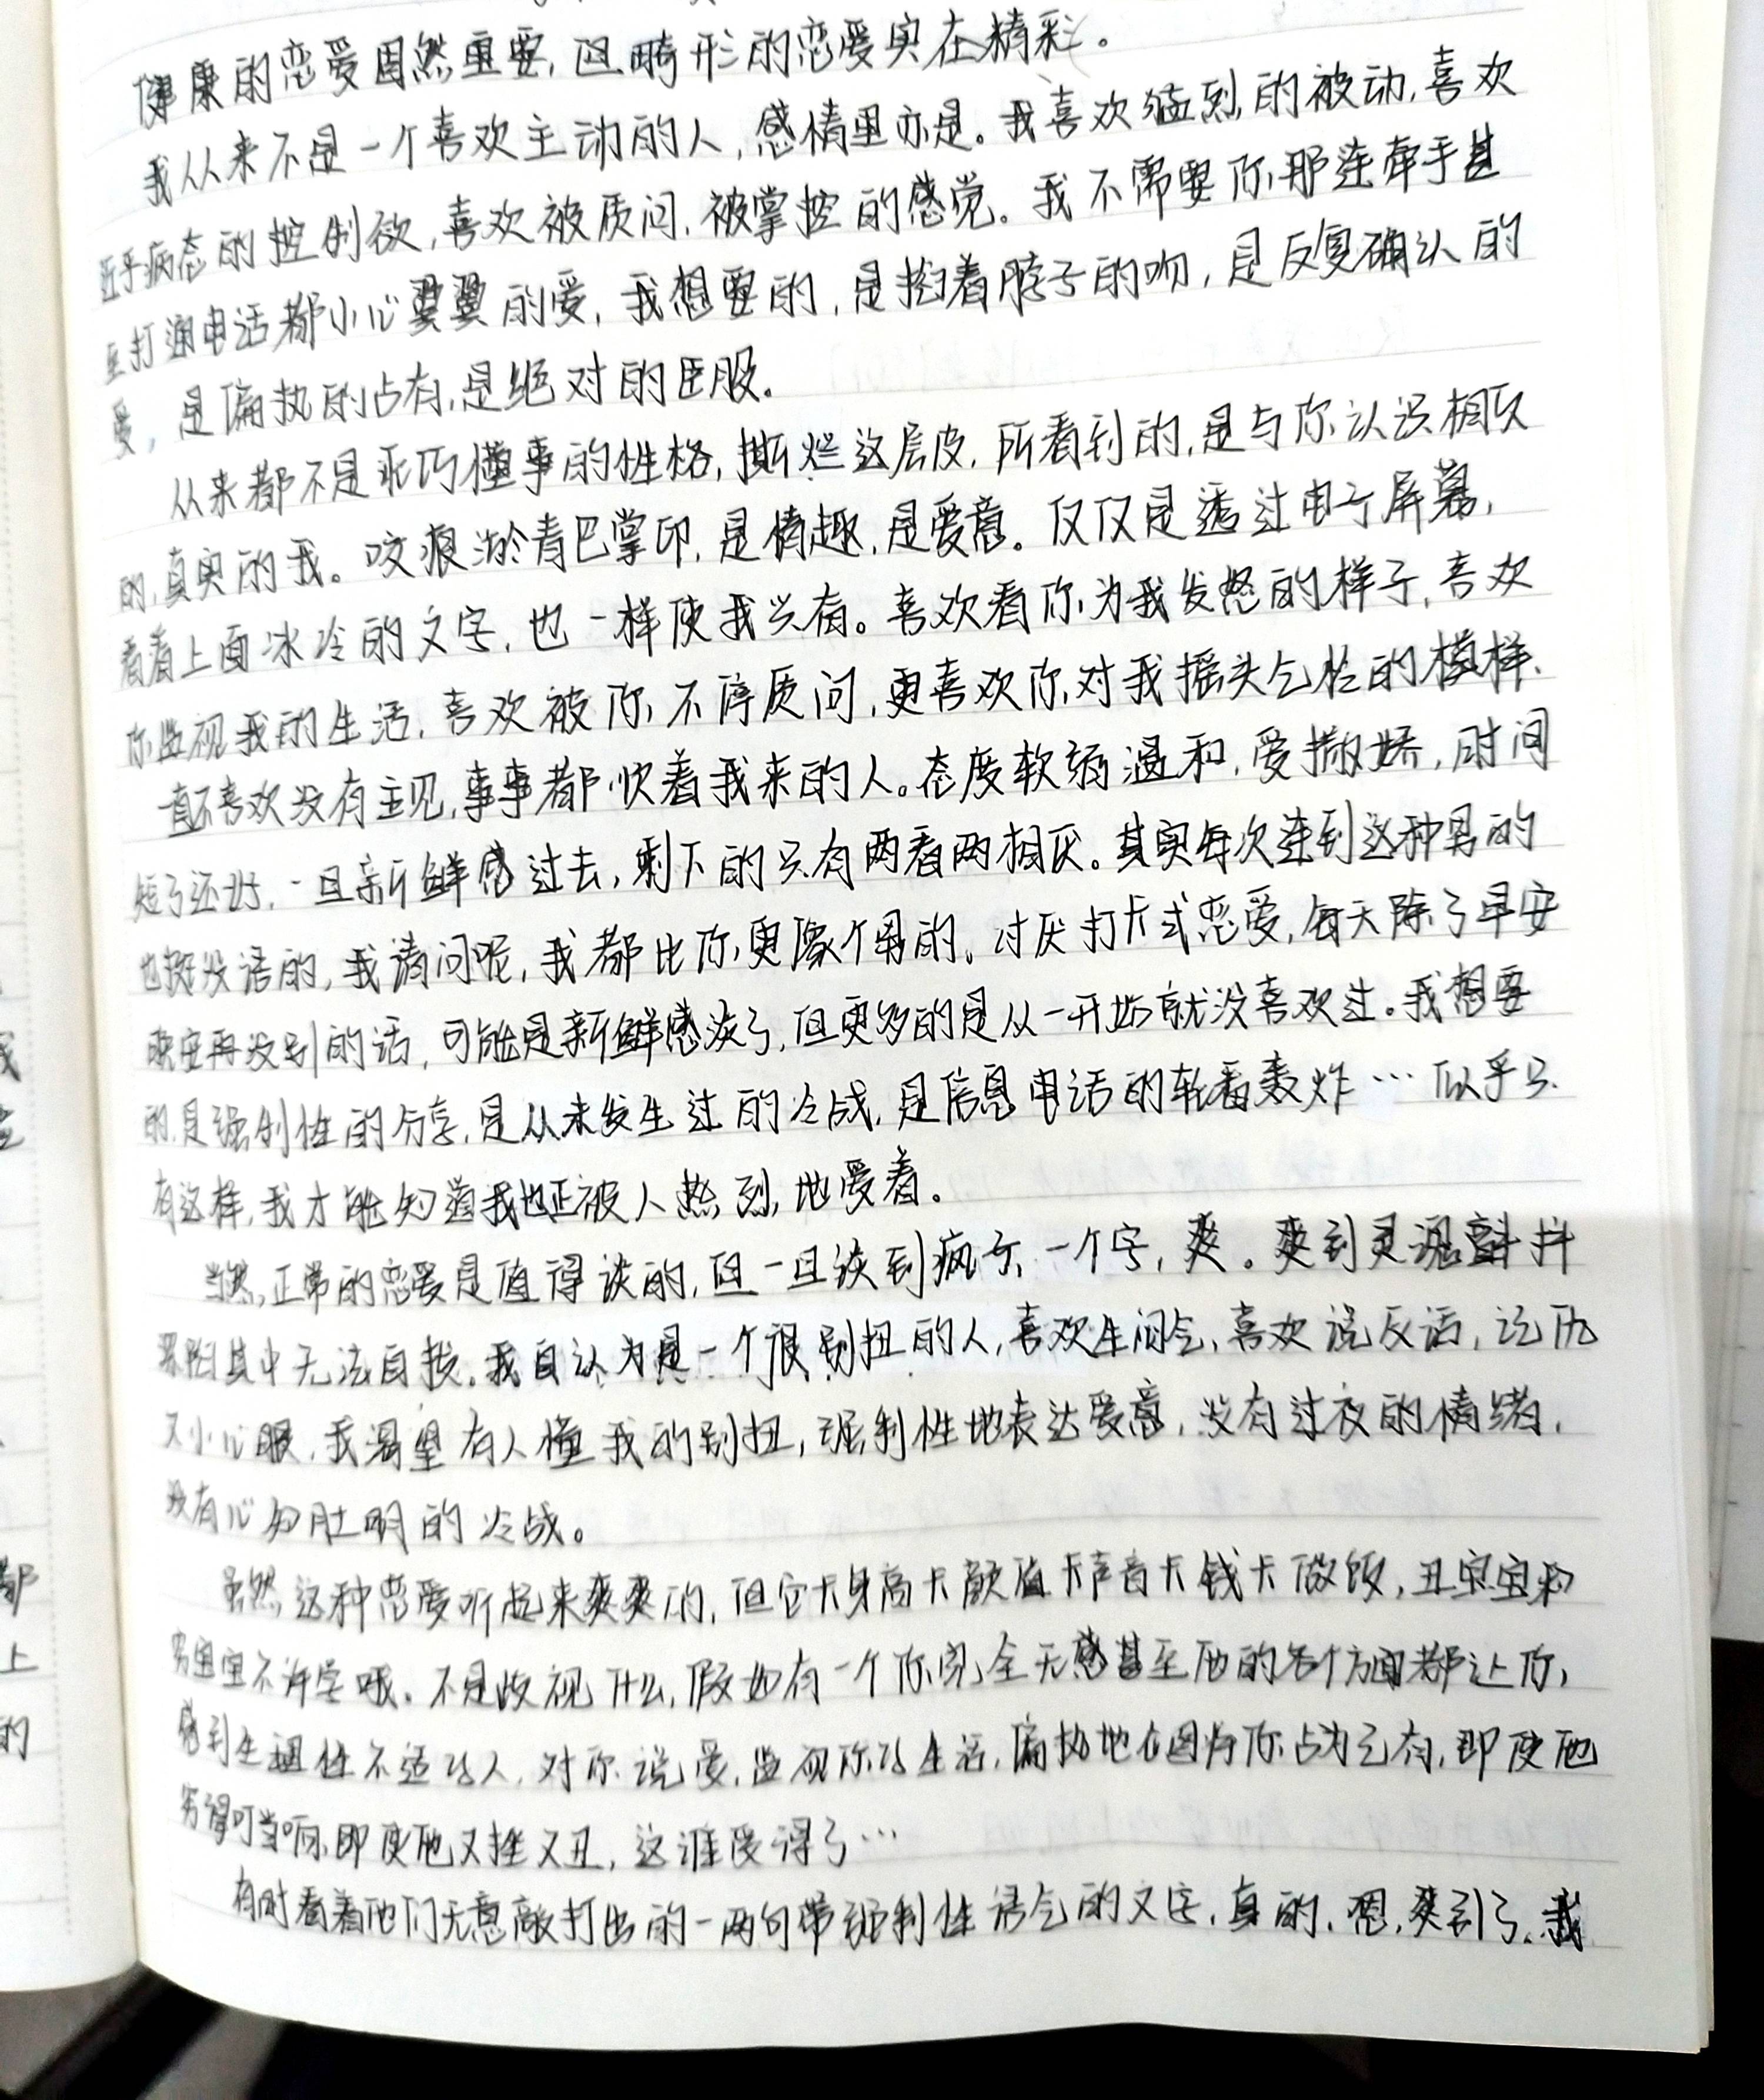 健康的恋爱固然重要，但畸形的恋爱实在精彩。
我从来不是一个喜欢主动的人，感情里亦是。我喜欢猛烈的被动，喜欢
近乎病态的控制欲，喜欢被质问，被掌控的感觉。我不需要你那连牵手甚
至打通电话都小心翼翼的爱，我想要的，是掐着脖子的吻，是反复确认的
爱，是偏执的占有，是绝对的臣服。
从来都不是乖巧懂事的性格，撕烂这层皮，所看到的，是与你认识相仅
的，真实的我。咬痕淤青巴掌印，是情趣，是爱意。仅仅是透过电子屏幕，
看着上面冰冷的文字，也一样使我兴奋。喜欢看你为我发怒的样子，喜欢
你监视我的生活，喜欢被你不停质问，更喜欢你对我摇头乞怜的模样。
一直不喜欢没有主见，事事都快着我来的人。态度软弱温和，爱撒娇，时间
短了还好，一旦新鲜感过去，剩下的只有两看两相厌。其实每次连到这种男的
也挺没语的，我请问呢，我都比你更像个男的。讨厌打卡式恋爱，每天除了早安
晚安再没别的话，可能是新鲜感淡了，但更多的是从一开始就没喜欢过。我想要
的，是强制性的分享，是从未发生过的冷战，是信息电话的轮番轰炸…似乎只
有这样，我才能知道我也正被人热烈地爱着。
当然，正常的恋爱是值得谈的，但一旦谈到疯子，一个字，爽。爽到灵魂颤抖
深陷其中无法自拔。我自认为是一个很别扭的人，喜欢生闷气，喜欢说反话，记仇
又小心眼，我渴望有人懂我的别扭，强制性地表达爱意，没有过夜的情绪，
没有心知肚明的冷战。
虽然这种恋爱听起来爽爽的，但它卡身高卡颜值卡声音卡钱卡做饭，丑宝宝和
穷宝宝不许学哦。不是歧视什么，假如有一个你完全无感甚至他的各个方面都让你
感到生理性不适的人，对你说爱，监视你的生活，偏执地在图将你占为己有，即使他
穷得叮当响，即使他又挫又丑，这谁受得了…
有时看着他们无意敲打出的一两句带强制性语气的文字，真的，嗯，爽到了。我